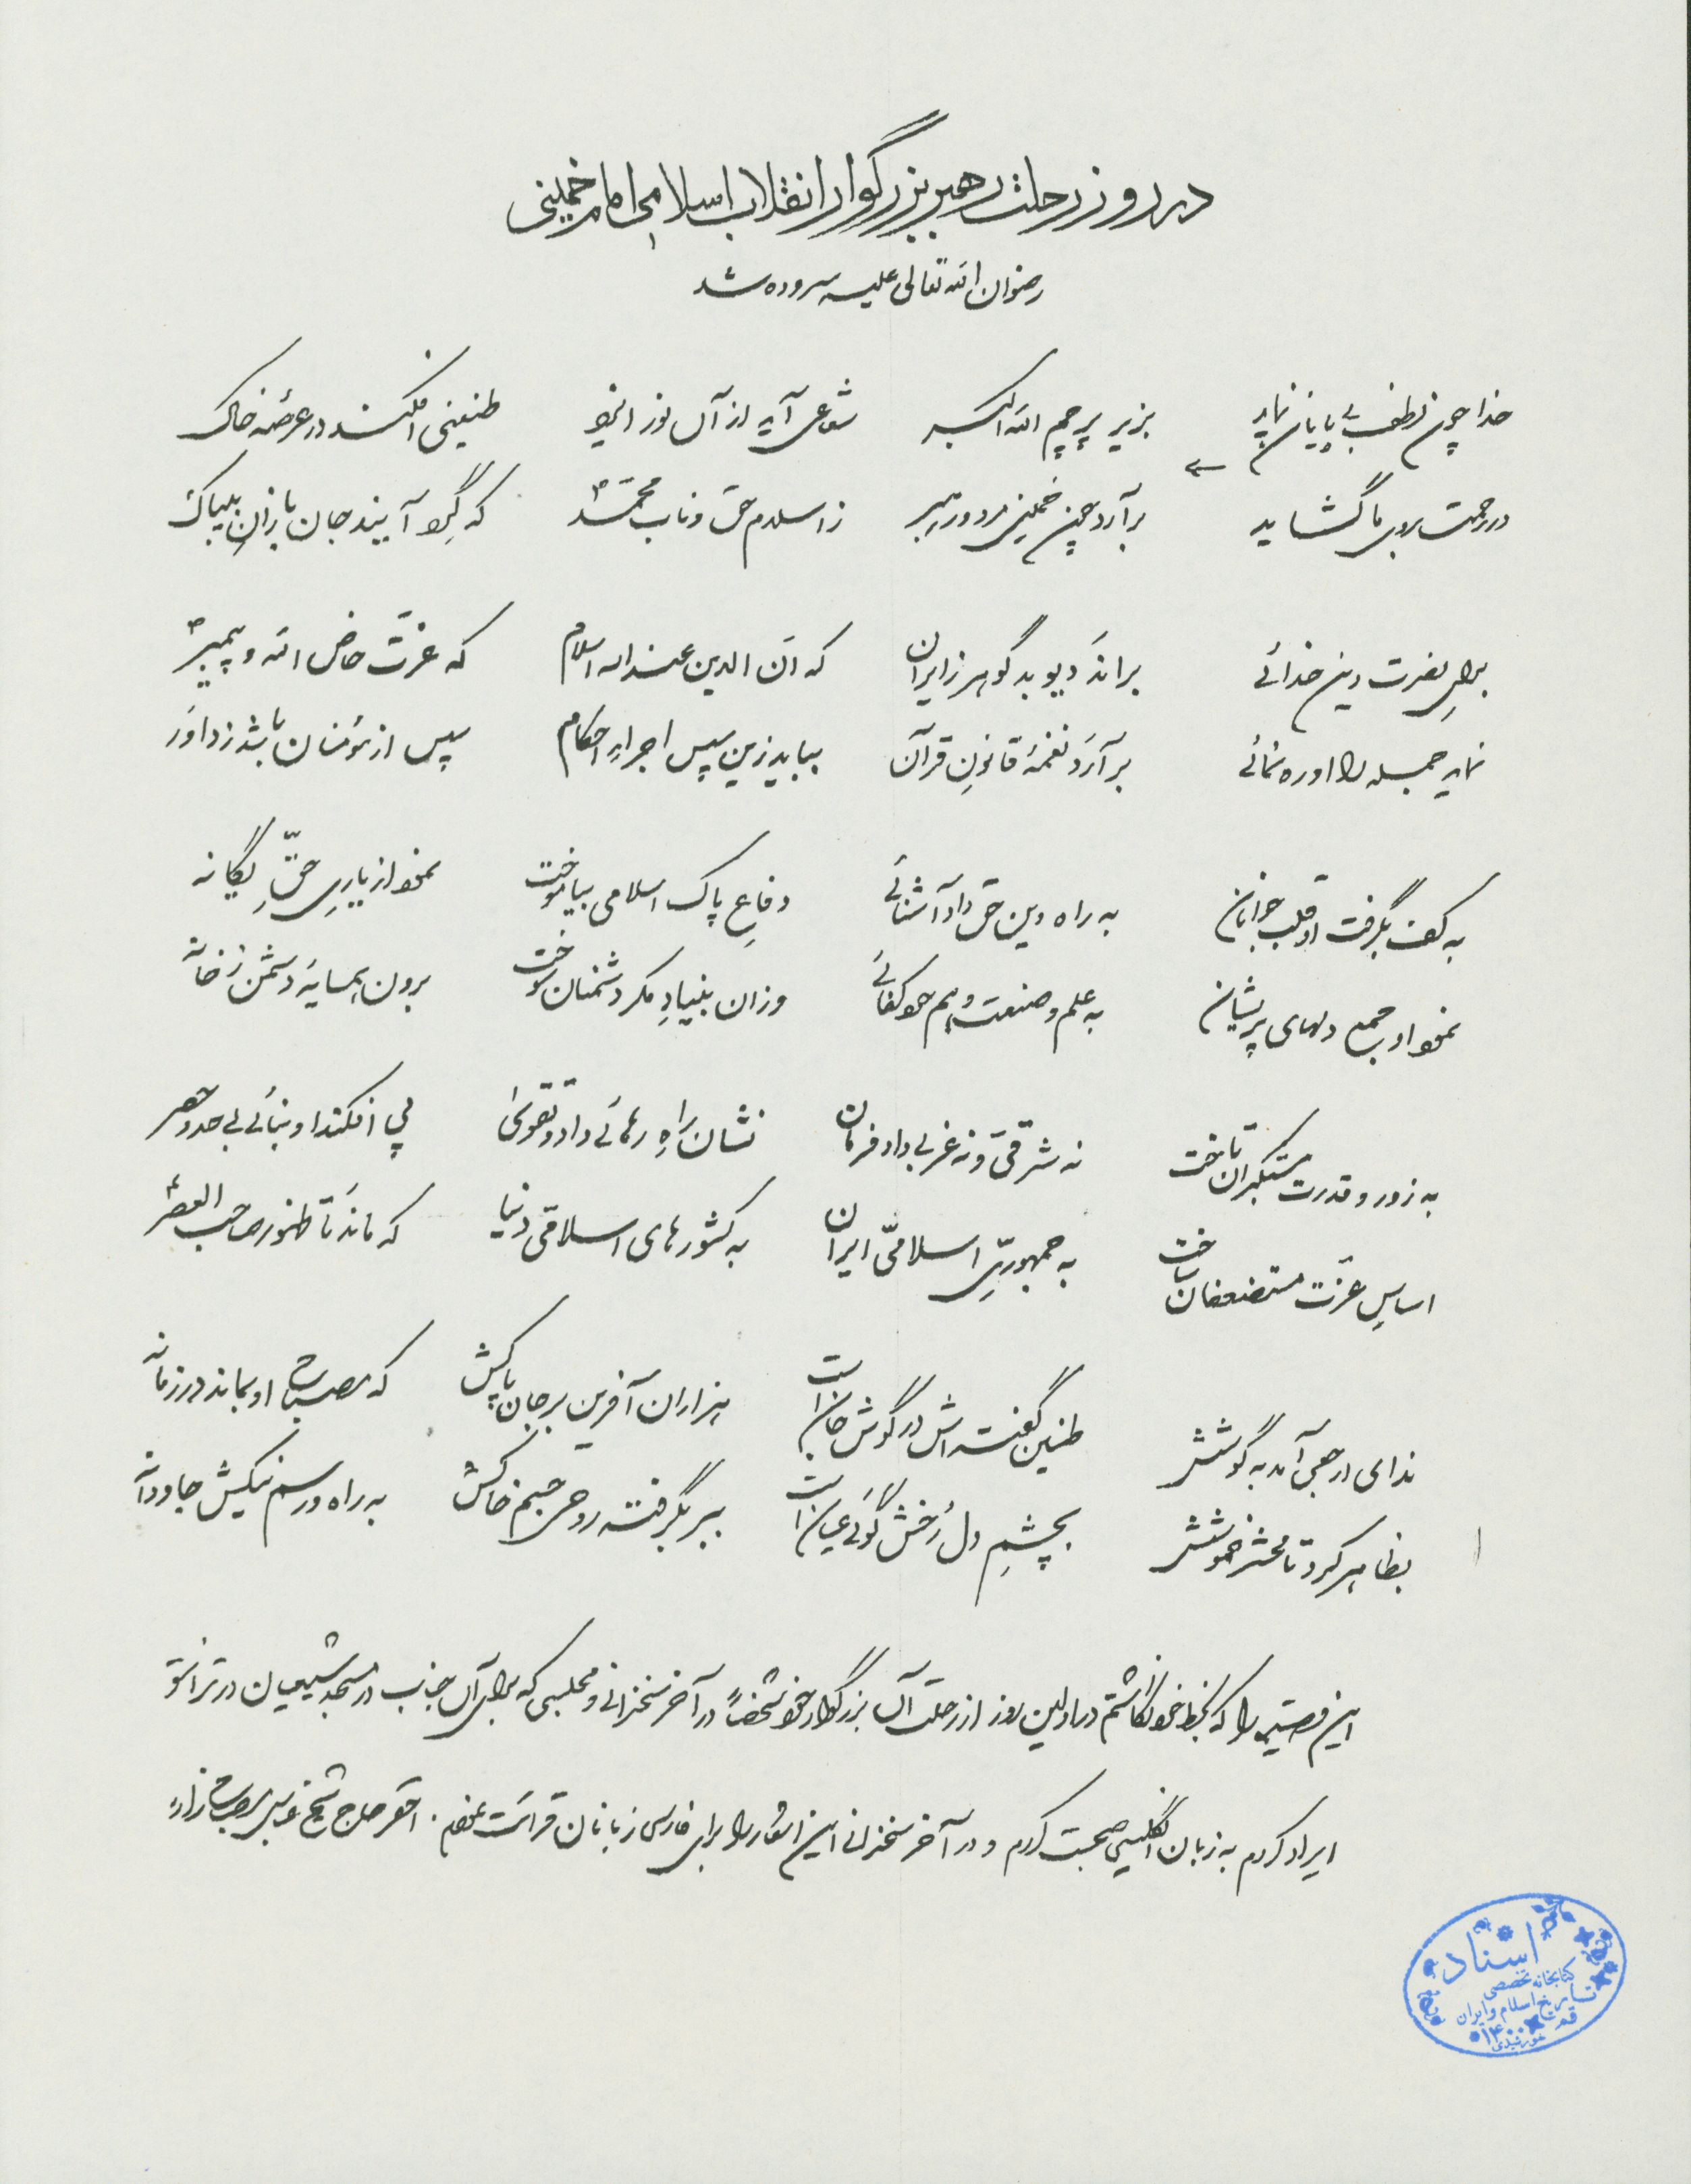 در روز رحلت رهبر بزرگوار انقلاب اسلامی امام خمینی
رضوان الله تعالی علیه سروده شد
خدا چون لطف بی پایان نماید بزیر پرچم الله اکبر شعاعی آید از آن نور ایزد طنینی افکند در عرصه خاک
در رحمت بروی ما گشاید برآرد چون خمینی مرد و رهبر ز اسلام حق و ناب محمّد ص که گِرد آیند جان بازانِ بیباک
برایِ نصرت دین خدائی براند دیو بد گوهر ز ایران که انّ الدین عند الله اسلام که عزّت خاص الله و پیمبر ص
نماید جمله را او ره نمائی برآرَد نغمهٔ قانونِ قرآن بباید زین سپس اجراءِ احکام سپس از مؤمنان باشد ز داوَر
به کف بگرفت او قلب جوانان به راه دین حق داد آشنائی دفاعِ پاک اسلامی بیاموخت نمود از یاریِ حقِّ یگانه
نمود او جمع دلهای پریشان به علم و صنعت و هم خودکفائی وزان بنیادِ مکر دشمنان سوخت برون همسایهٔ دشمن ز خانه
به زور و قدرت مستکبران تاخت نه شرقیّ و نه غربی داد فرمان نشان راهِ رهائی داد و تقوی پی افکند او بنائی بی حد و حصر
اساسِ عزّت مستضعفان ساخت به جمهوریِّ اسلامیّ ایران به کشورهای اسلامی دنیا که ماند تا ظهور صاحب العصر ع
ندای ارجعی آمد به گوشش طنین گفته اش در گوش جان است هزاران آفرین بر جان پاکش که مصباح او بماند در زمانه
بظاهر کرد تا محشر خموشش بچشمِ دل رُخش گوئی عیان است ببر بگرفته روحی جسم خاکش به راه و رسم نیکش جاودانه
این قصیده را که بخط خود نگاشتم در اولین روز از رحلت آن بزرگوار خود شخصاً در آخر سخنرانی و مجلسی که برای آن جناب در مسجد شیعیان در ترانتو
ایراد کردم به زبان انگلیسی صحبت کردم و در آخر سخنرانی این اشعار را برای فارسی زبانان قرائت نمودم. احقر حاج شیخ عباس مصباح زاده
اسناد
کتابخانه تخصصی
تاریخ اسلام و ایران
قم